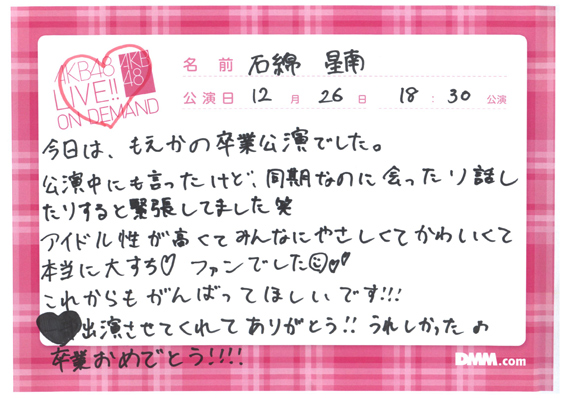 AKB48
LIVE!!
ON DEMAND
AKB
48
名前 石綿 星南
公演日 12 月 26 日 18 : 30 公演
今日は、もえかの卒業公演でした。
公演中にも言ったけど、同期なのに会ったり話し
たりすると緊張してました笑
アイドル性が高くてみんなにやさしくてかわいくて
本当に大すち♡ ファンでした☺♡♡
これからもがんばってほしいです!!!
出演させてくれてありがとう!! うれしかった♫
卒業おめでとう!!!!
DMM.com